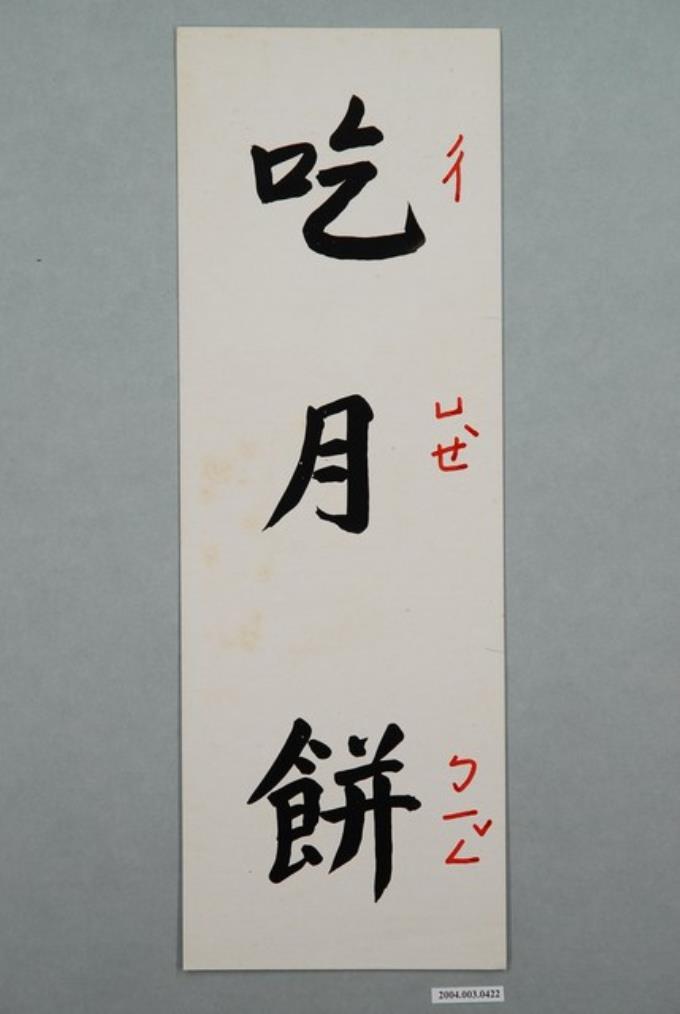 吃月餅
ㄔ
ㄩㄝˋ
ㄅㄧㄥˇ
2004.003.0422